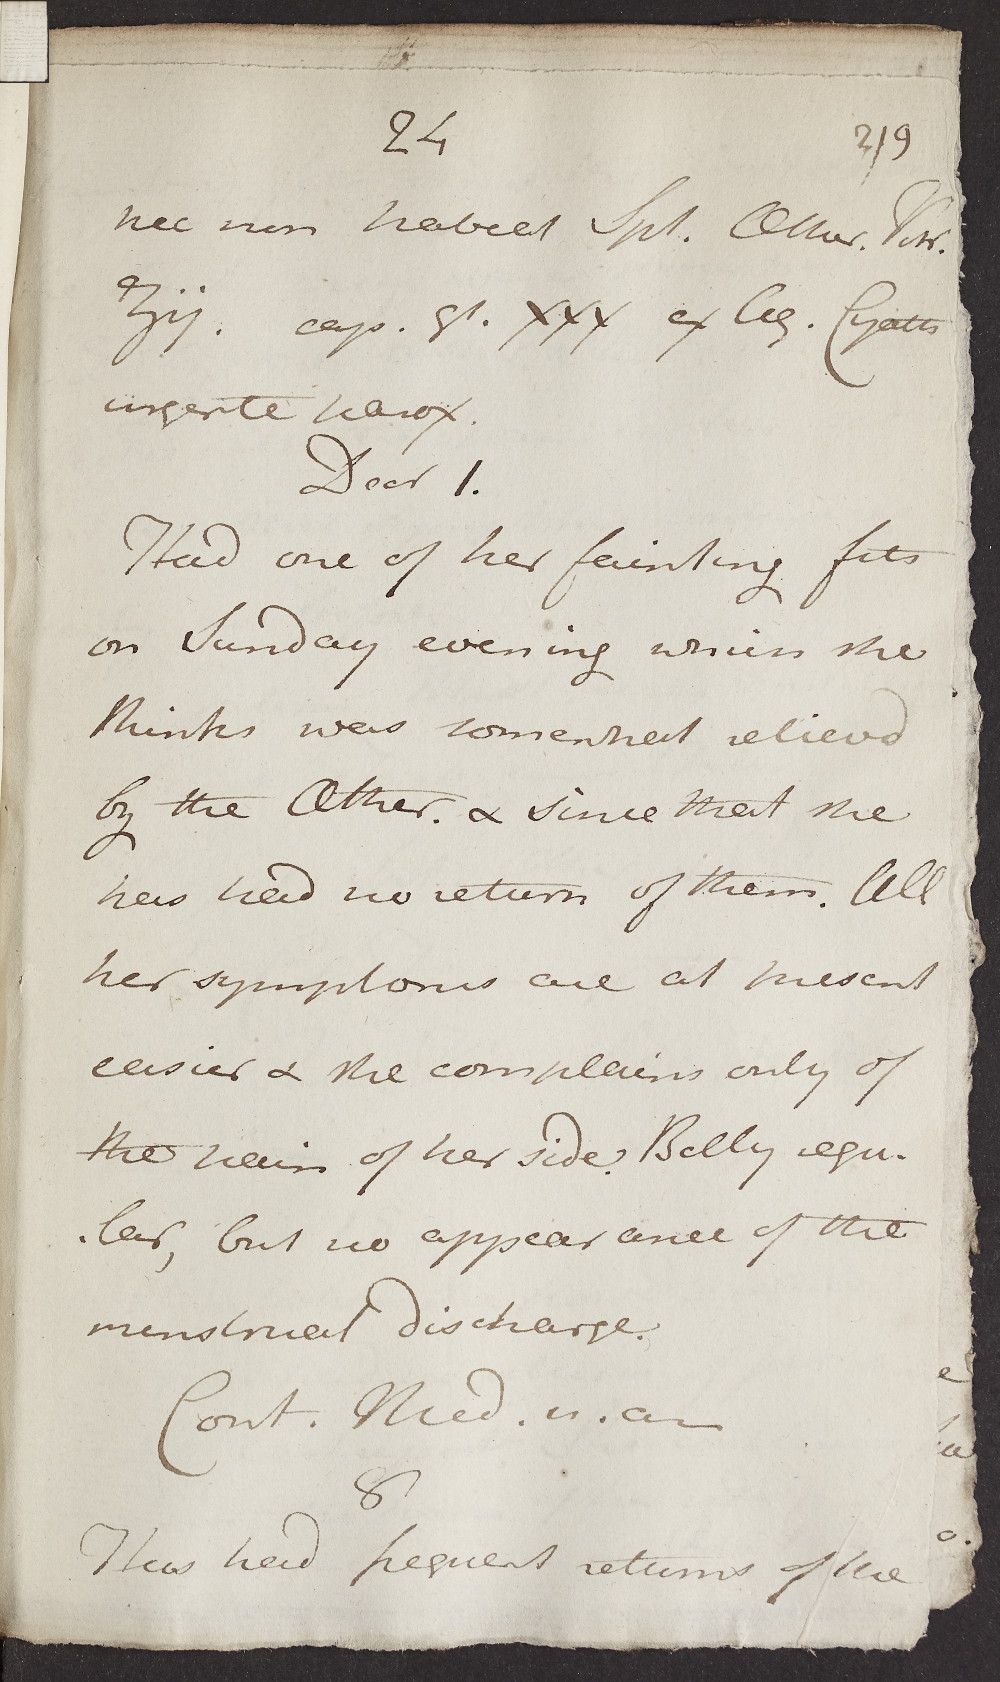 24
219
nec non habeat Spt. Æther. Vitr.
ʒij. cap. gt. XXX ex Aq. Cyath
urgente parox.
Decr 1.
Had one of her fainting fits
on Sunday evening which she
thinks was somewhat relievd
by the Æther. & since that she
has had no return of them. All
her symptoms are at present
easier & she complains only of
the pain of her side. Belly regu-
-lar, but no appearance of the
menstrual discharge.
Cont. Med. u. an
8
Has had frequent returns of the